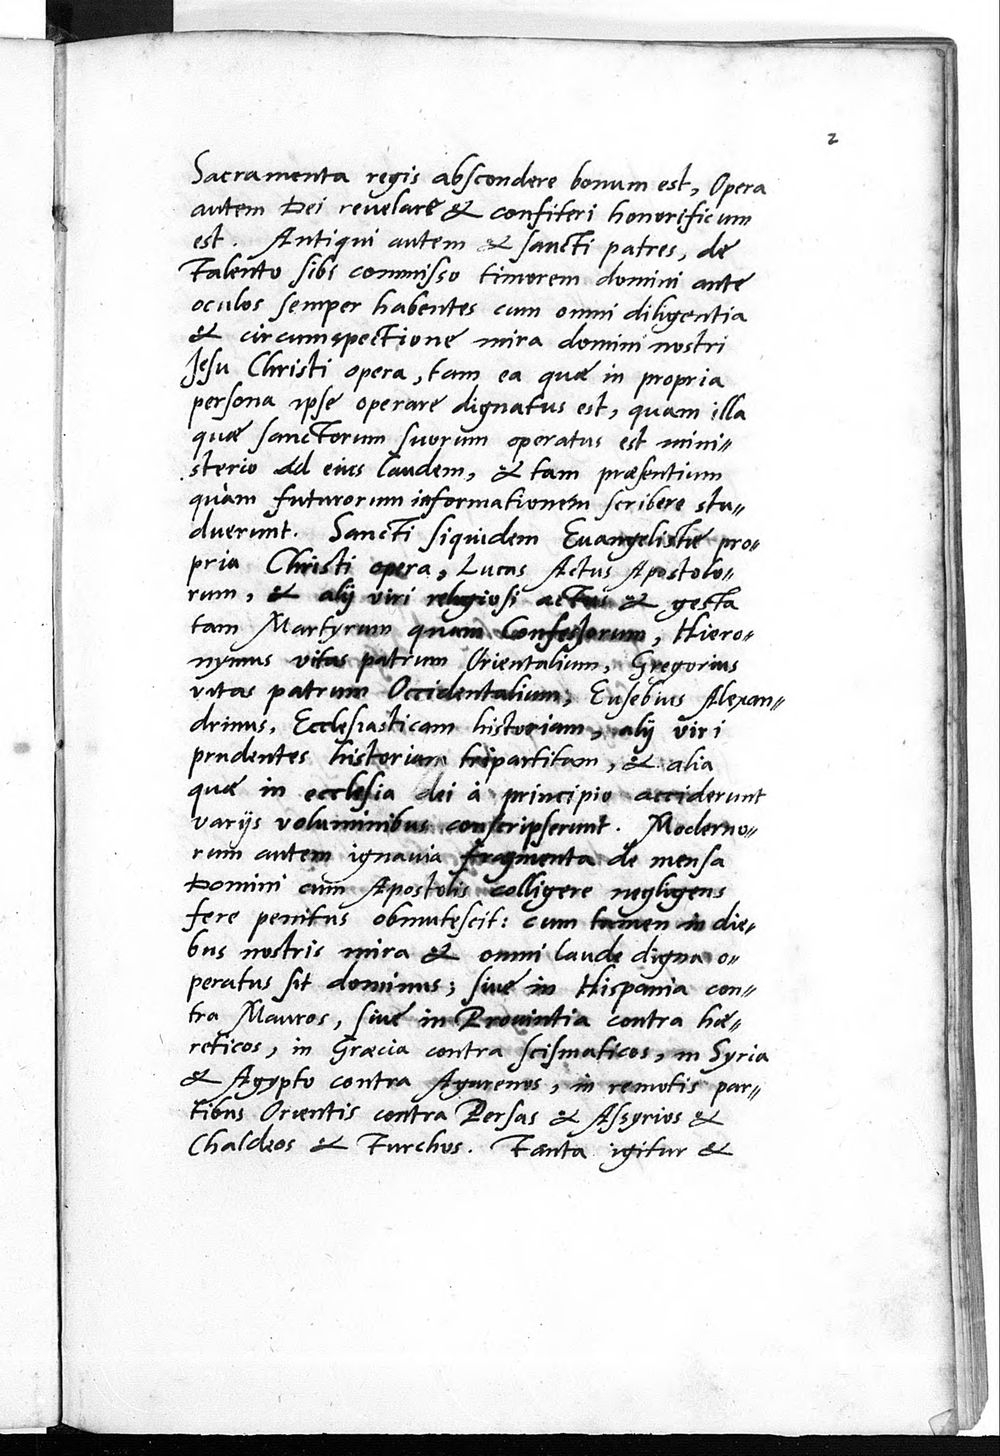 2
Sacramenta regis abscondere bonum est, Opera
autem Dei reuelare & confiteri honorificum
est. Antiqui autem & sancti patres, de
Talento sibi commisso timorem domini ante
oculos semper habentes cum omni diligentia
& circumspectione mira domini nostri
Jesu Christi opera, tam ea quæ in propria
persona ipse operare dignatus est, quam illa
quæ sanctorum suorum operatus est mini=
sterio ad eius laudem, & tam præsentium
quàm futurorum informationem scribere stu=
duerunt. Sancti siquidem Euangelistæ pro=
pria Christi opera, Lucas Actus Apostolo=
rum, & alij viri religiosi actus & gesta
tam Martyrum quam Confessorum, Hiero=
nymus vitas patrum Orientalium, Gregorius
vitas patrum Occidentalium, Eusebius Alexan=
drinus, Ecclesiasticam historiam, alij viri
prudentes historiam tripartitam, & alia
quæ in ecclesia dei à principio acciderunt
varijs voluminibus conscripserunt. Moderno=
rum autem ignauia fragmenta de mensa
Domini cum Apostolis colligere negligens
fere penitus obmutescit: cum tamen in die=
bus nostris mira & omni laude digna o=
peratus sit dominus; siue in Hispania con=
tra Mauros, siue in Prouintia contra hæ=
reticos, in Græcia contra scismaticos, in Syria
& Ægypto contra Agarenos, in remotis par=
tibus Orientis contra Persas & Assyrios &
Chaldeos & Turchos. Tanta igitur &